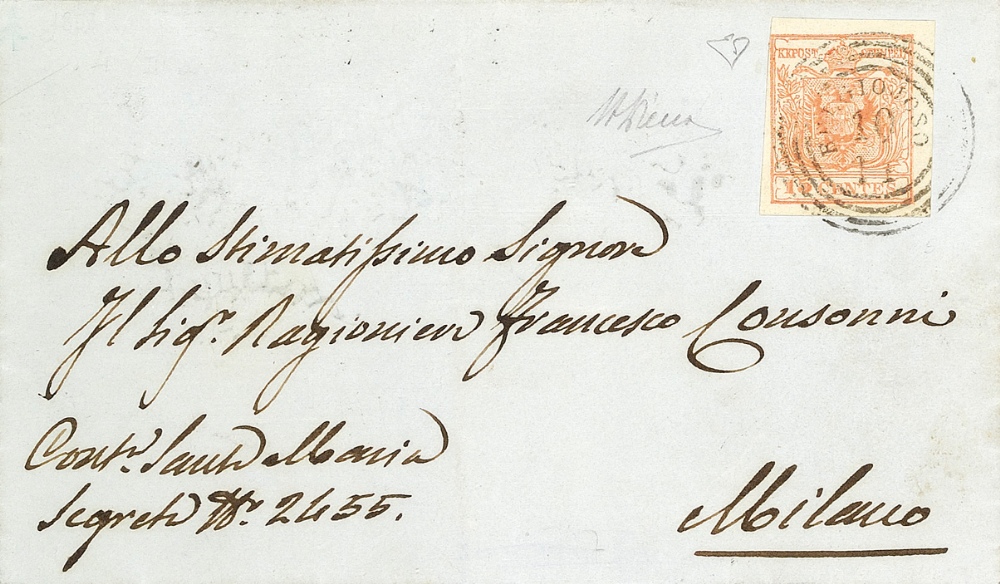 KKPOST
BELGIOJOSO
10
15 CENTES
Allo Stimatissimo Signore
Il Sigr. Ragioniere Francesco Consonni
Contr. Santa Maria
Segreta Nr. 2455.
Milano